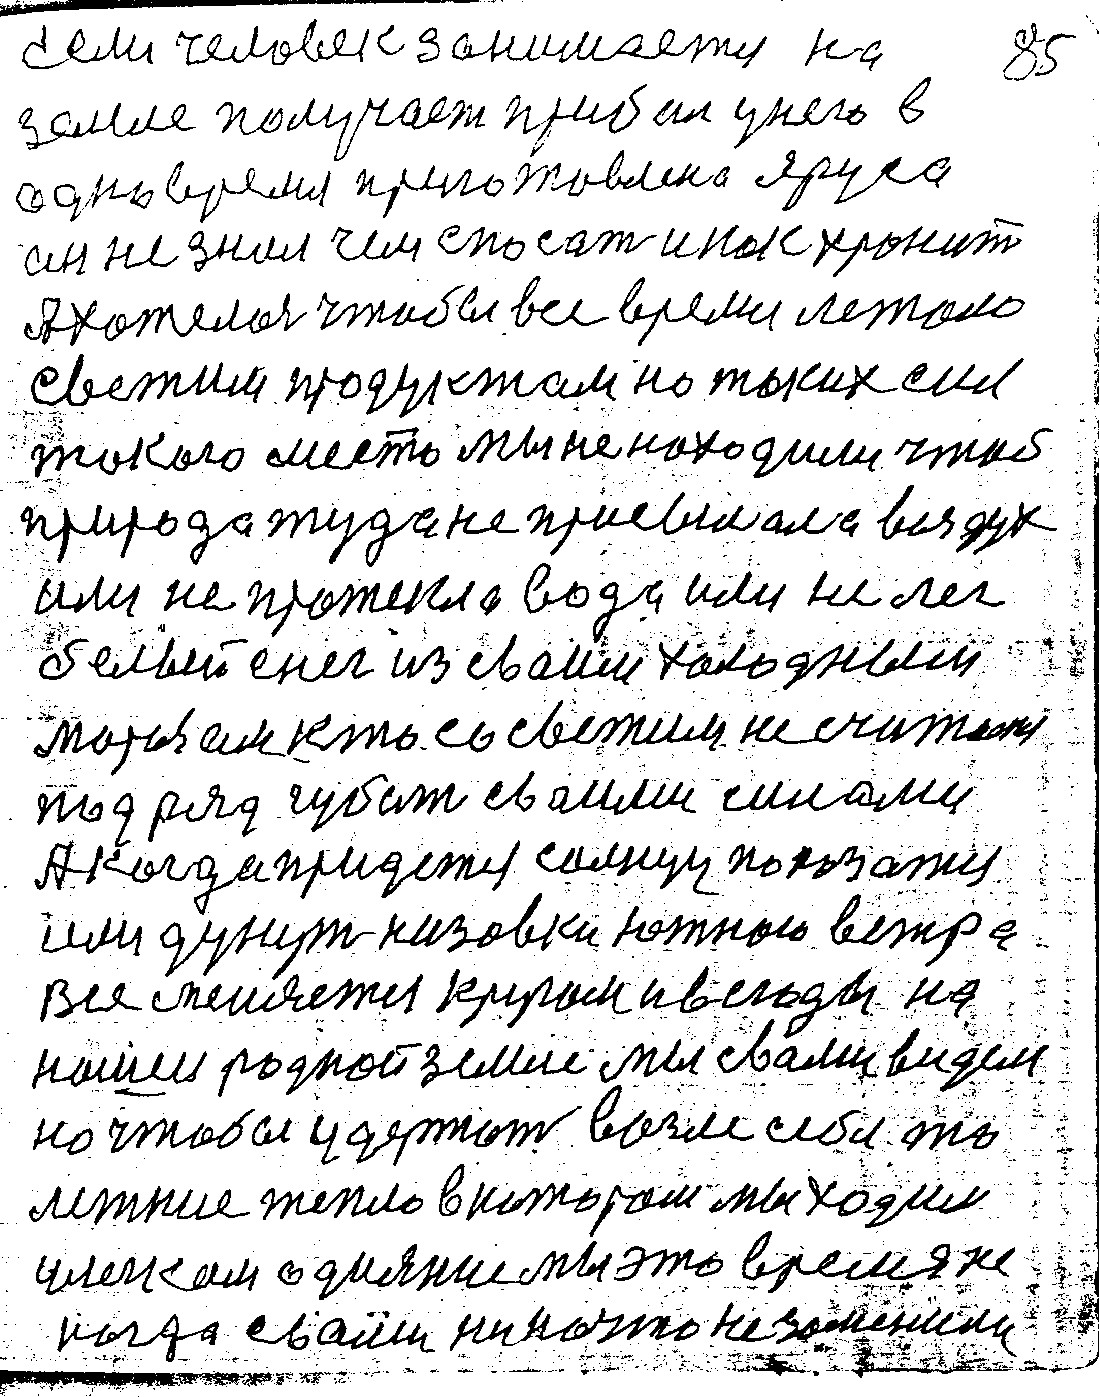 Если человек занимается на 85
земле получает прибыл у него в
одно время приготовлена яруса
он не знал чем спосат и как хронит
А хотелось чтобы все время летоло
светим продуктам но таких сил
токого место мы не находили чтоб
природа туда не присылала воздух
или не протекла вода или не лег
белый снег из своим холодным
морозам кто со светим не считается
под ряд губит своими силами
А когда придется солнцу показатся
или дунут низовки южного ветра
все меняется кругом и всегды на
нашеи родной земле мы свами видем
но чтобы удержат возле себя то
летние тепло в котором мы ходим
одияние мы это время не
когда свами ни на что не заменим